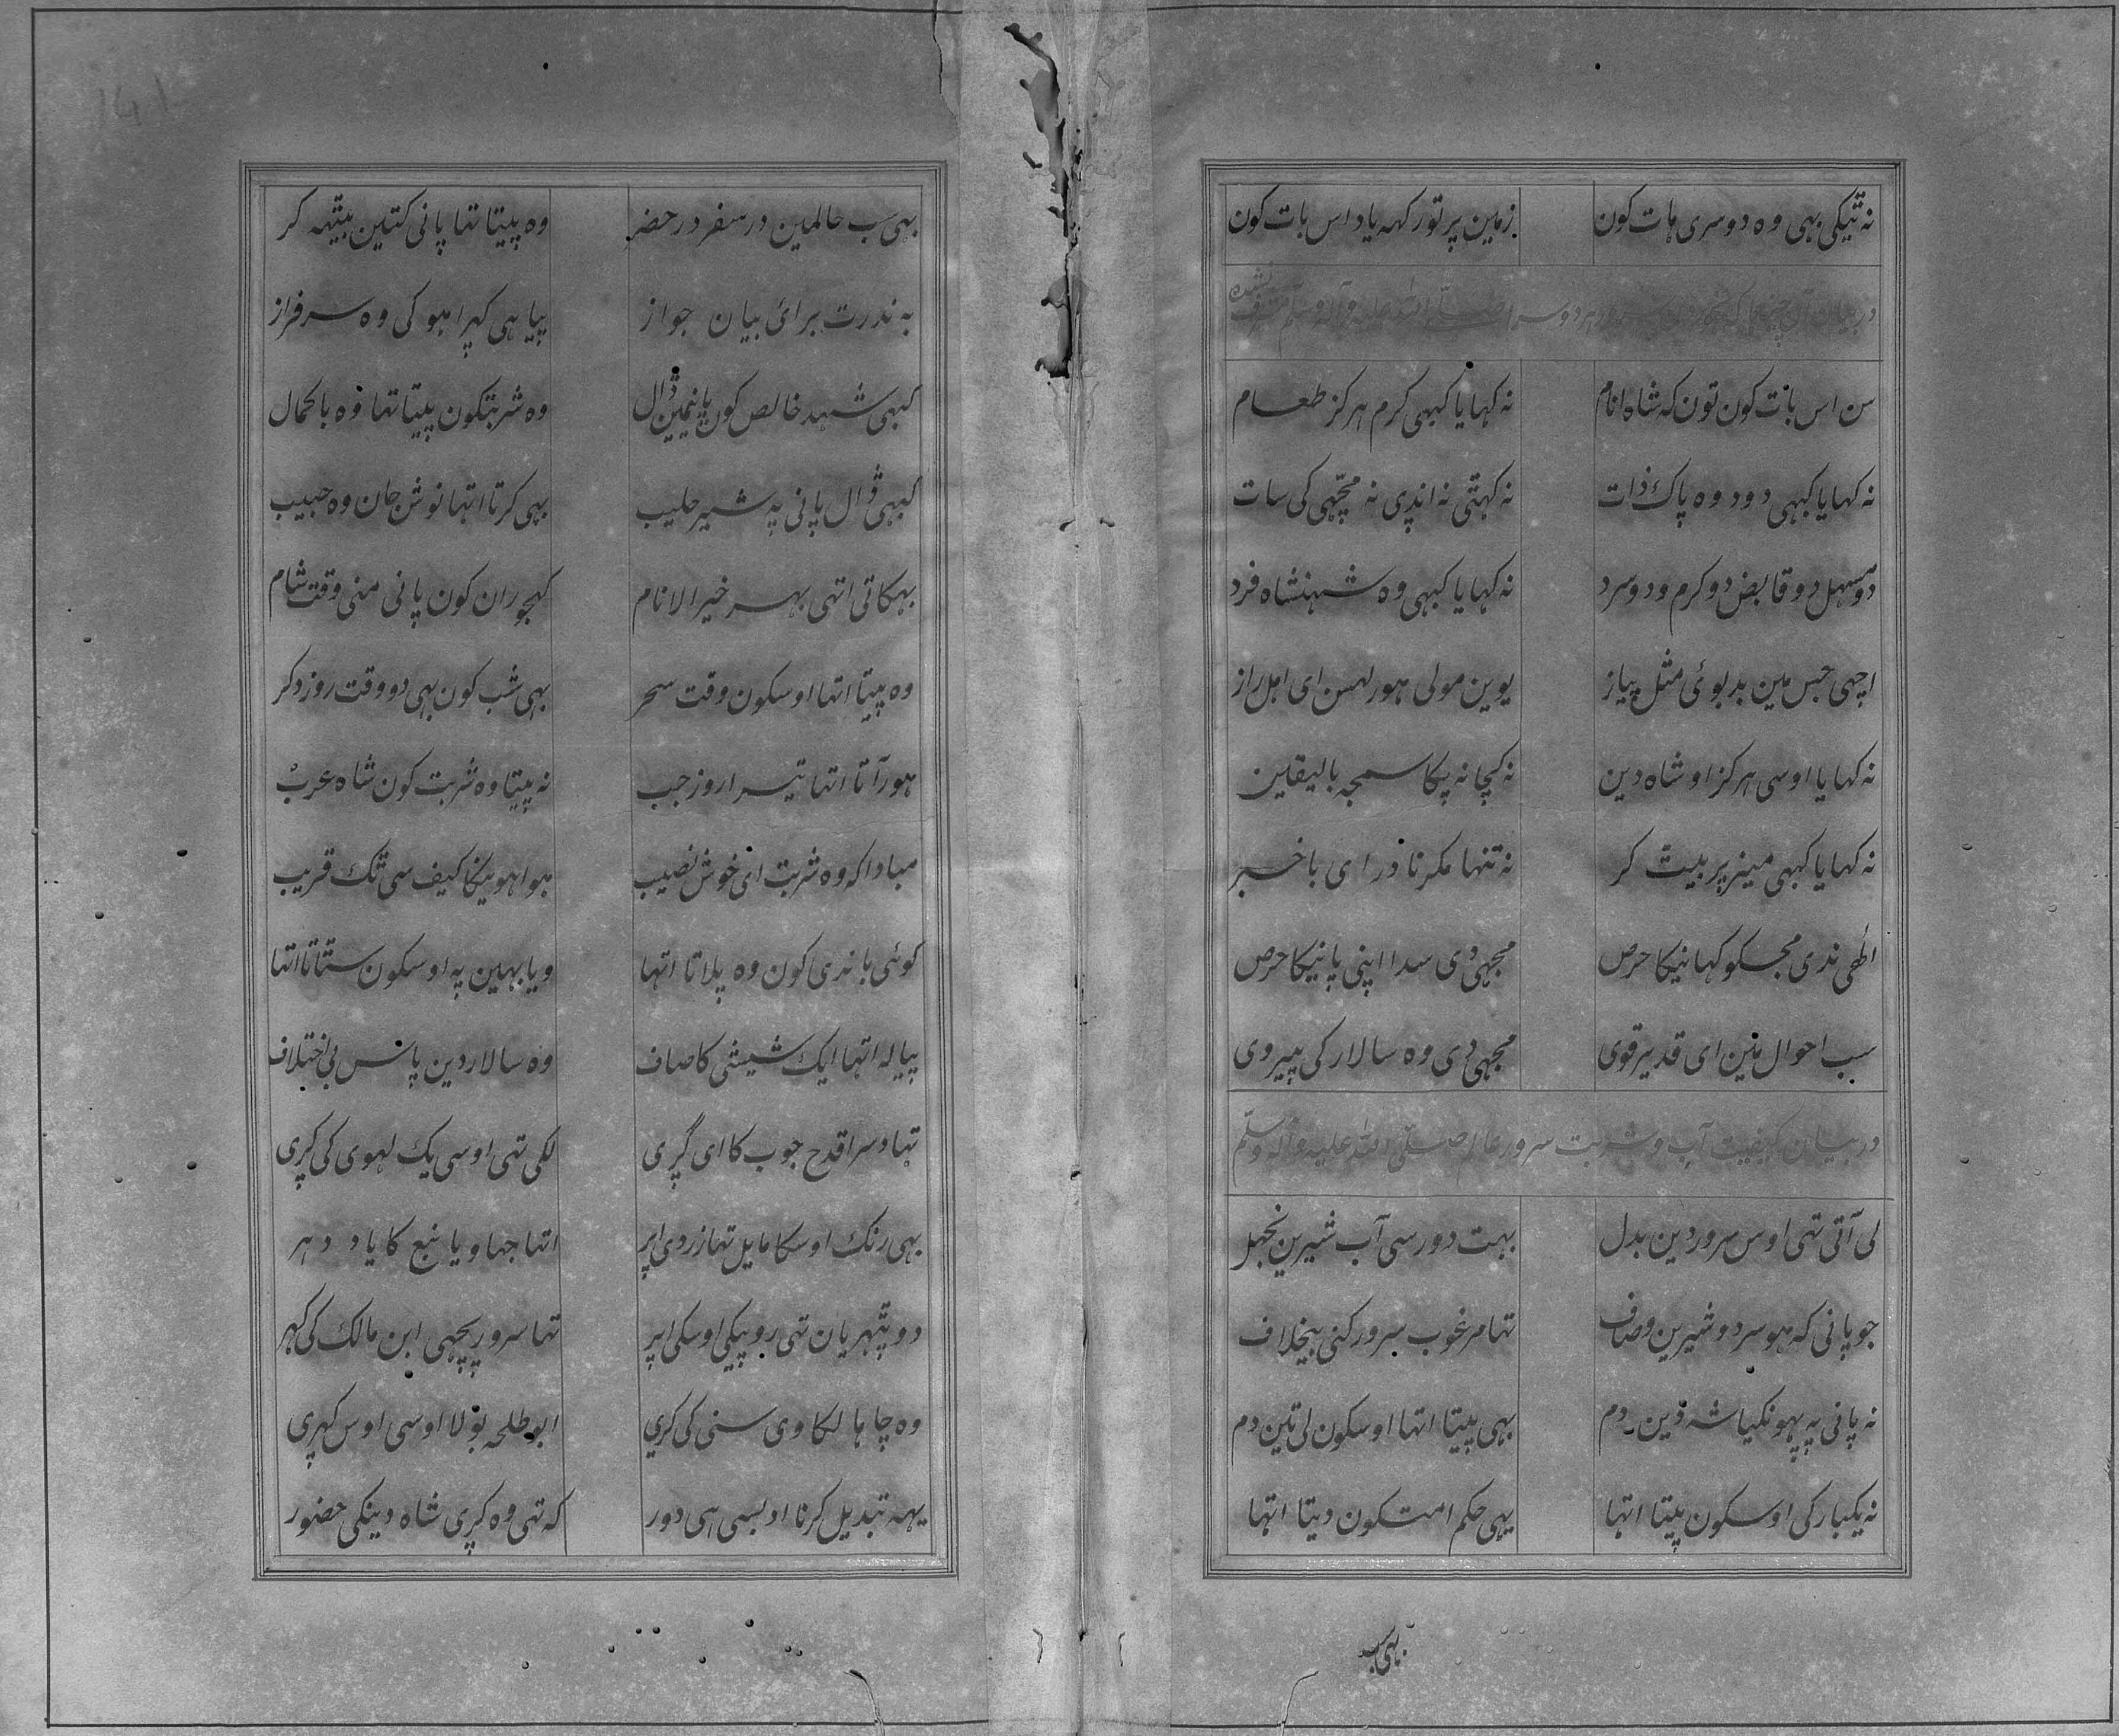 نه تیکی بهی وه دوسری هات کون زمین پر تو رکهه یاد اس بات کون
در بیان آن چیزها که سرور هر دو سرا صلّی الله علیه وآله وسلّم
سن اس بات کون تون که شاه انام نه کهایا کبهی کرم هرکز طعام
نه کهایا کبهی دود وه پاک ذات نه کهتی نه اندی نه مچهی کی سات
دو مسهل دو قابض دو کرم و دو سرد نه کهایا کبهی وه شهنشاه فرد
اچهی جس مین بدبوئی مثل پیاز یوین مولی هور لهسن ای اهل راز
نه کهایا اوسی هرکز او شاه دین نه کچا نه پکا سمجه بالیقین
نه کهایا کبهی میز پر بیت کر نه تنها مکر نادر ای باخبر
الهی ندی مجسکو کهانیکا حرص مجهی دی سدا اپنی پانیکا حرص
سب احوال مین ای قدیر قوی مجهی دی وه سالار کی پیروی
در بیان کیفیت آب و شربت سرور عالم صلّی الله علیه وآله وسلّم
لی آتی تهی اوس سرور دین بدل بهت دور سی آب شیرین
جو پانی که هو سرد و شیرین و صاف تها مرغوب سرور کنی بیخلاف
نه پانی په پهونکیا شه دین دم بهی پیتا اتها اوسکون لی تین دم
نه یکبارکی اوسکون پیتا اتها یهی حکم امتکون دیتا اتها
بهی سب
بهی سب حالمین در سفر در حضر وه پیتا تها پانی کتین بیتهه کر
به ندرت برائ بیان جواز پیا هی کهرا هو کی وه سرفراز
کبهی شهد خالص کون پانیمین ڈال وه شربتکون پیتا تها وه باکمال
کبهی ڈال پانی به شیر حلیب بهی کرتا اتها نوش جان وه حبیب
بهکاتی اتهی بهر خیر الانام کهجوران کون پانی منی وقت شام
وه پیتا اتها اوسکون وقت سحر بهی شب کون بهی دو وقت روز دکر
هور آتا اتها تیسرا روز جب نه پیتا وه شربت کون شاه عرب
مبادا که وه شربت ای خوش نصیب هوا هویکا کیف سی تک قریب
کوئی باندی کون وه پلاتا اتها ویا بهین په اوسکون ستاتا اتها
پیاله اتها ایک شیشی کا صاف وه سالار دین پاس بی اختلاف
تها دسرا قدح چوب کا ای کری لکی تهی اوسی یک لهوی کی کری
بهی رنک اوسکا مایل تها زردی اپر اتها جهاو یا نبع کا یاد دهر
دو پتهریان تهی روپیکی اوسکی اپر تها سرور پچهی ابن مالک کی کهر
وه چاها لکاوی سنی کی کری ابو طلحه بولا اوسی اوس کهری
یهه تبدیل کرنا ادب سی هی دور که تهی وه کری شاه دینکی حضور